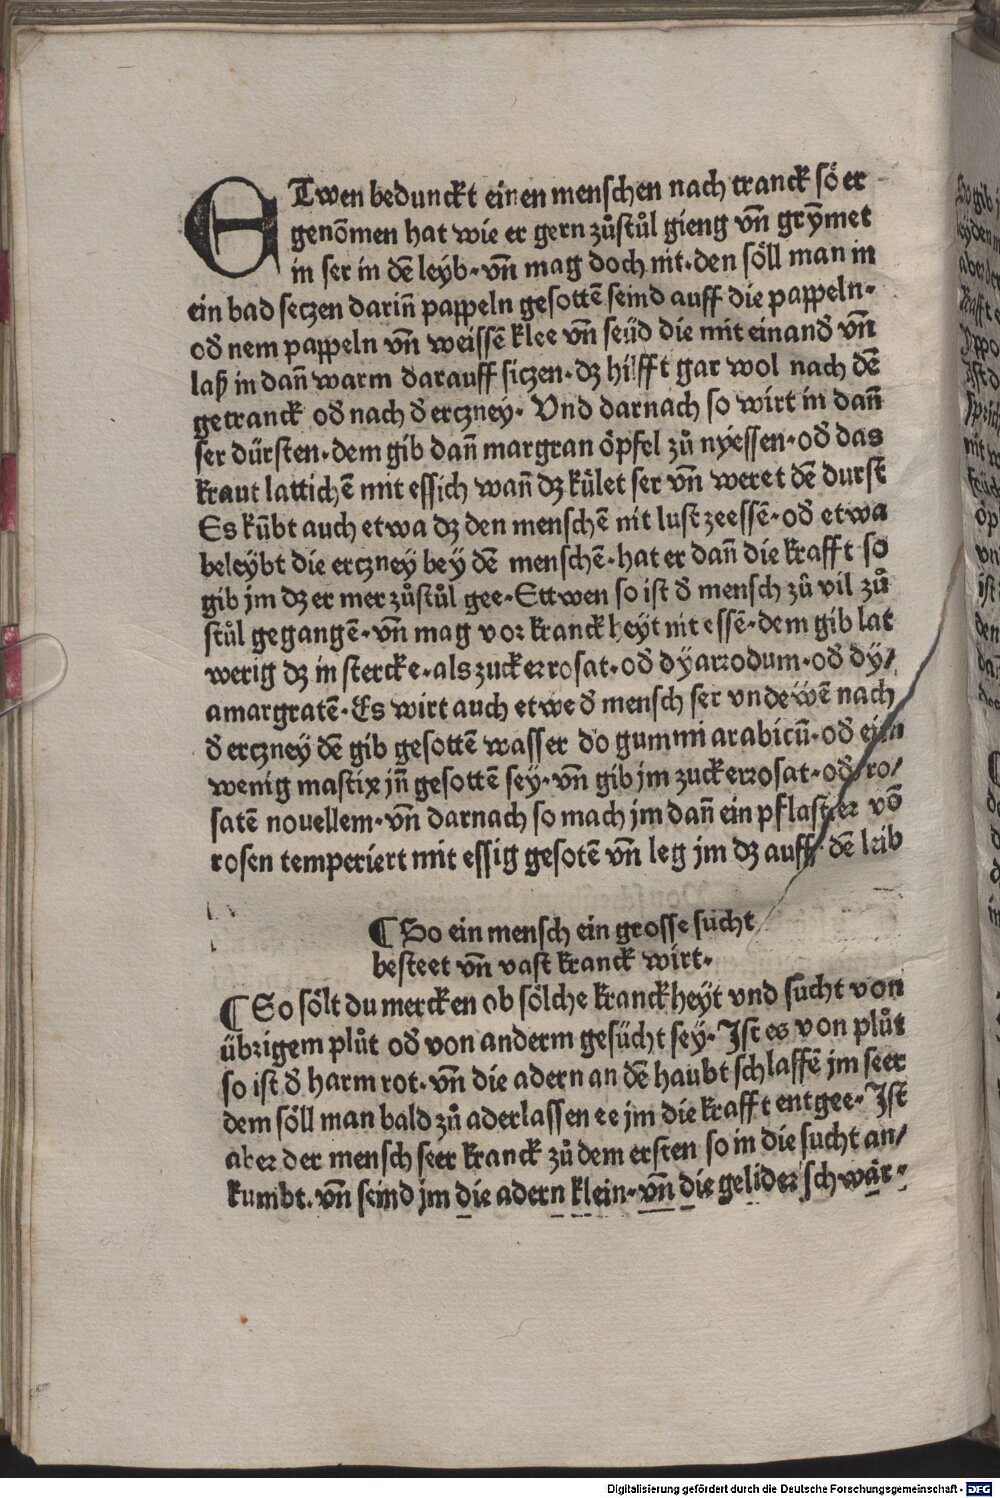 ETwen bedunckt einen menschen nach tranck so er
genõmen hat wie er gern zůstůl gieng vñ grÿmet
in ser in dẽ leyb· vñ mag doch nit· den söll man in
ein bad seczen dariñ pappeln gesottẽ seind auff die pappeln·
oď nem pappeln vñ weissẽ klee vñ seüd die mit einanď vñ
laß in dañ warm darauff siczen· dz hilfft gar wol nach dẽ
getranck oď nach ď erczney· Vnd darnach so wirt in dañ
ser dürsten· dem gib dañ margran öpfel zů nyessen· oď das
kraut lattichẽ mit essich wañ dz kület ser vñ weret dẽ durst
Es kũbt auch etwa dz den menschẽ nit lust zeessẽ· oď etwa
beleybt die erczney bey dẽ menschẽ· hat er dañ die krafft so
gib jm dz er mer zůstůl gee· Ettwen so ist ď mensch zů vil zů
stůl gegangẽ· vñ mag vor kranckheyt nit essẽ· dem gib lat
werig dz in stercke· als zuckerrosat· oď dyarrodum· oď dy/
amargratẽ· Es wirt auch etwe ď mensch ser vndewẽ nach
ď erczney dẽ gib gesottẽ wasser do gummi arabicũ· oď ein
wenig mastix jñ gesottẽ sey· vñ gib jm zuckerrosat· oď ro/
satẽ nouellem· vñ darnach so mach jm dañ ein pflaster võ
rosen temperiert mit essig gesotẽ vñ leg jm dz auff dẽ leib
¶ So ein mensch ein grosse sucht
besteet vñ vast kranck wirt·
¶ So sölt du mercken ob sölche kranckheyt vnd sucht von
übrigem plůt oď von anderm gesücht sey· Ist es von plůt
so ist ď harm rot· vñ die adern an dẽ haubt schlaffẽ jm seer
dem söll man bald zů aderlassen ee jm die krafft entgee· Ist
aber der mensch seer kranck zů dem ersten so in die sucht an/
kumbt. vñ seind jm die adern klein· vñ die gelider schwär·
Digitalisierung gefördert durch die Deutsche Forschungsgemeinschaft - DFG